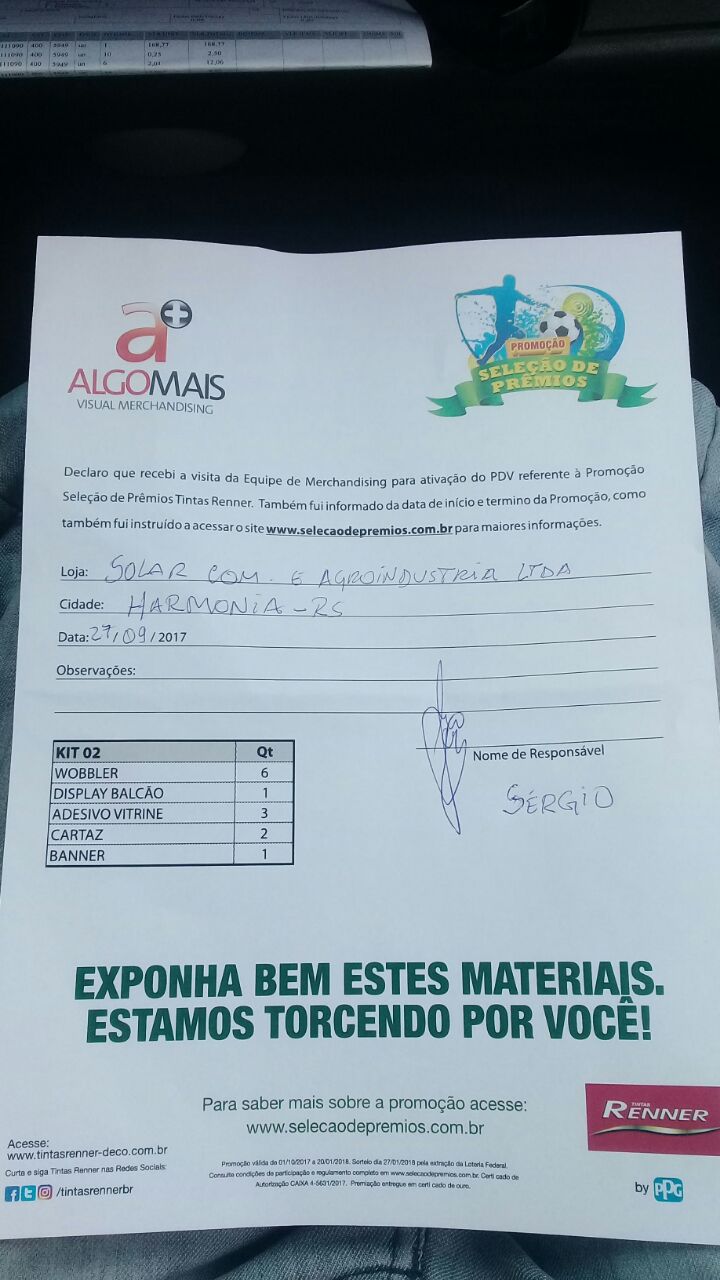 111090 400 5949 un 1 168,77 168,77
111090 400 5949 un 10 0,25 2,50
111090 400 5949 un 6 2,01 12,06
a+
ALGOMAIS
VISUAL MERCHANDISING
PROMOÇÃO
SELEÇÃO DE
PRÊMIOS
Declaro que recebi a visita da Equipe de Merchandising para ativação do PDV referente à Promoção
Seleção de Prêmios Tintas Renner. Também fui informado da data de início e termino da Promoção, como
também fui instruído a acessar o site www.selecaodepremios.com.br para maiores informações.
Loja: SOLAR COM. E AGROINDUSTRIA LTDA
Cidade: HARMONIA-RS
Data: 27/09/2017
Observações:
Nome de Responsável
SÉRGIO
KIT 02 Qt
WOBBLER 6
DISPLAY BALCÃO 1
ADESIVO VITRINE 3
CARTAZ 2
BANNER 1
EXPONHA BEM ESTES MATERIAIS.
ESTAMOS TORCENDO POR VOCÊ!
Para saber mais sobre a promoção acesse:
www.selecaodepremios.com.br
TINTAS
RENNER
by PPG
Acesse:
www.tintasrenner-deco.com.br
Curta e siga Tintas Renner nas Redes Sociais:
/tintasrennerbr
Promoção válida de 01/10/2017 a 20/01/2018. Sorteio dia 27/01/2018 pela extração da Loteria Federal.
Consulte condições de participação e regulamento completo em www.selecaodepremios.com.br. Certificado de
Autorização CAIXA 4-5631/2017. Premiação entregue em certificado de ouro.